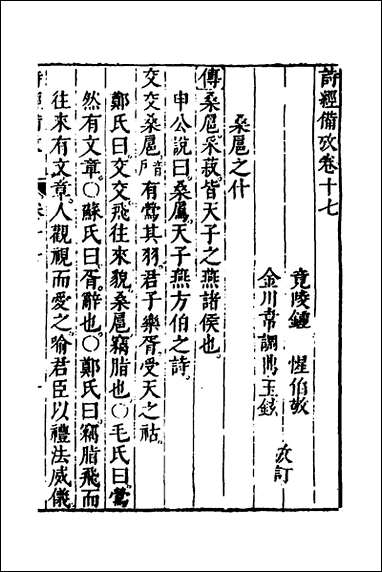 詩經備攷卷十七
竟陵鍾　惺伯敬
金川韋調鼎玉鉉　攷訂
桑扈之什
傳桑扈采菽皆天子之燕諸侯也
申公說曰桑扈天子燕方伯之詩
交交桑扈音戶有鶯其羽君子樂胥受天之祜
鄭氏曰交交飛往來貌桑扈竊脂也〇毛氏曰鶯
然有文章〇蘇氏曰胥辭也〇鄭氏曰竊脂飛而
往來有文章人觀視而愛之喻君臣以禮法威儀